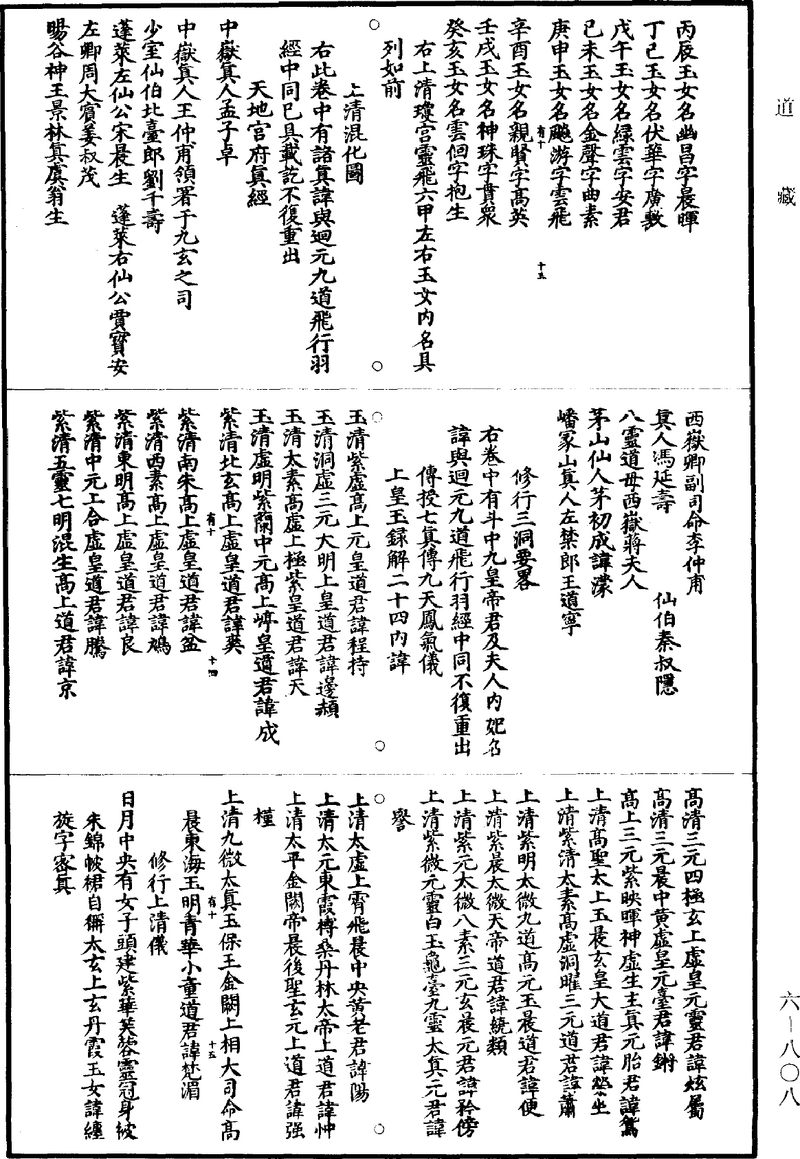 道藏
六―八〇八
丙辰玉女名幽昌字晨暉
丁巳玉女名伏華字廣敷
戊午玉女名綠雲字安君
己未玉女名金聲字曲素
庚申玉女名飈游字雲飛
有十 十五
辛酉玉女名親賢字高英
壬戌玉女名神珠字賁衆
癸亥玉女名雲佪字抱生
右上清瓊宫靈飛六甲左右玉女内名具
列如前
上清混化圖
右此卷中有諸真諱與迴元九道飛行羽
經中同已具載訖不復重出
天地官府真經
中嶽真人孟子卓
中嶽真人王仲甫領署于九玄之司
少室仙伯北臺郎劉千壽
蓬萊左仙公宋晨生 蓬萊右仙公賈寳安
左卿周大賓姜叔茂
暘谷神王景林真虞翁生
西嶽卿副司命李仲甫
真人馮延壽 仙伯秦叔隱
八靈道母西嶽蔣夫人
茅山仙人茅初成諱濛
嶓冢山真人左禁郎王道寧
修行三洞要畧
右卷中有斗中九皇帝君及夫人内妃名
諱與迴元九道飛行羽經中同不復重出
傳授七真傳九天鳳氣儀
上皇玉錄解二十四内諱
玉清紫虚高上元皇道君諱程持
玉清洞虚三元大明上皇道君諱邊頳
玉清太素高虚上極紫皇道君諱天
玉清虚明紫蘭中元高上皇道君諱成
紫清北玄高上虚皇道君諱英
有十 十四
紫清南朱高上虚皇道君諱盆
紫清西素高上虚皇道君諱鳩
紫清東明高上虚皇道君諱良
紫清中元上合虚皇道君諱騰
紫清五靈七明混生高上道君諱京
高清三元四極玄上虚皇元靈君諱炫屬
高清三元晨中黄虚皇元臺君諱
高上三元紫映暉神虚生主真元胎君諱鴛
上清高聖太上玉晨玄皇大道君諱
上清紫清太素高虚洞曜三元道君諱蕭
上清紫明太微九道高元玉晨道君諱便
上清紫晨太微天帝道君諱繞類
上清紫元太微八素三元玄晨元君諱矜傍
上清紫微元靈白玉龜臺九靈太真元君諱
謍
上清太虚上霄飛晨中央黄老君諱陽
上清太元東霞榑桑丹林太帝上道君諱忡
上清太平金闕帝晨後聖玄元上道君諱强
槿
上清九微太真玉保王金闕上相大司命高
晨東海玉明青華小童道君諱梵湄
有十 十五
修行上清儀
日月中央有女子頭建紫華芙蓉靈冠身披
朱錦帔裙自稱太玄上玄丹霞玉女諱纏
旋字密真